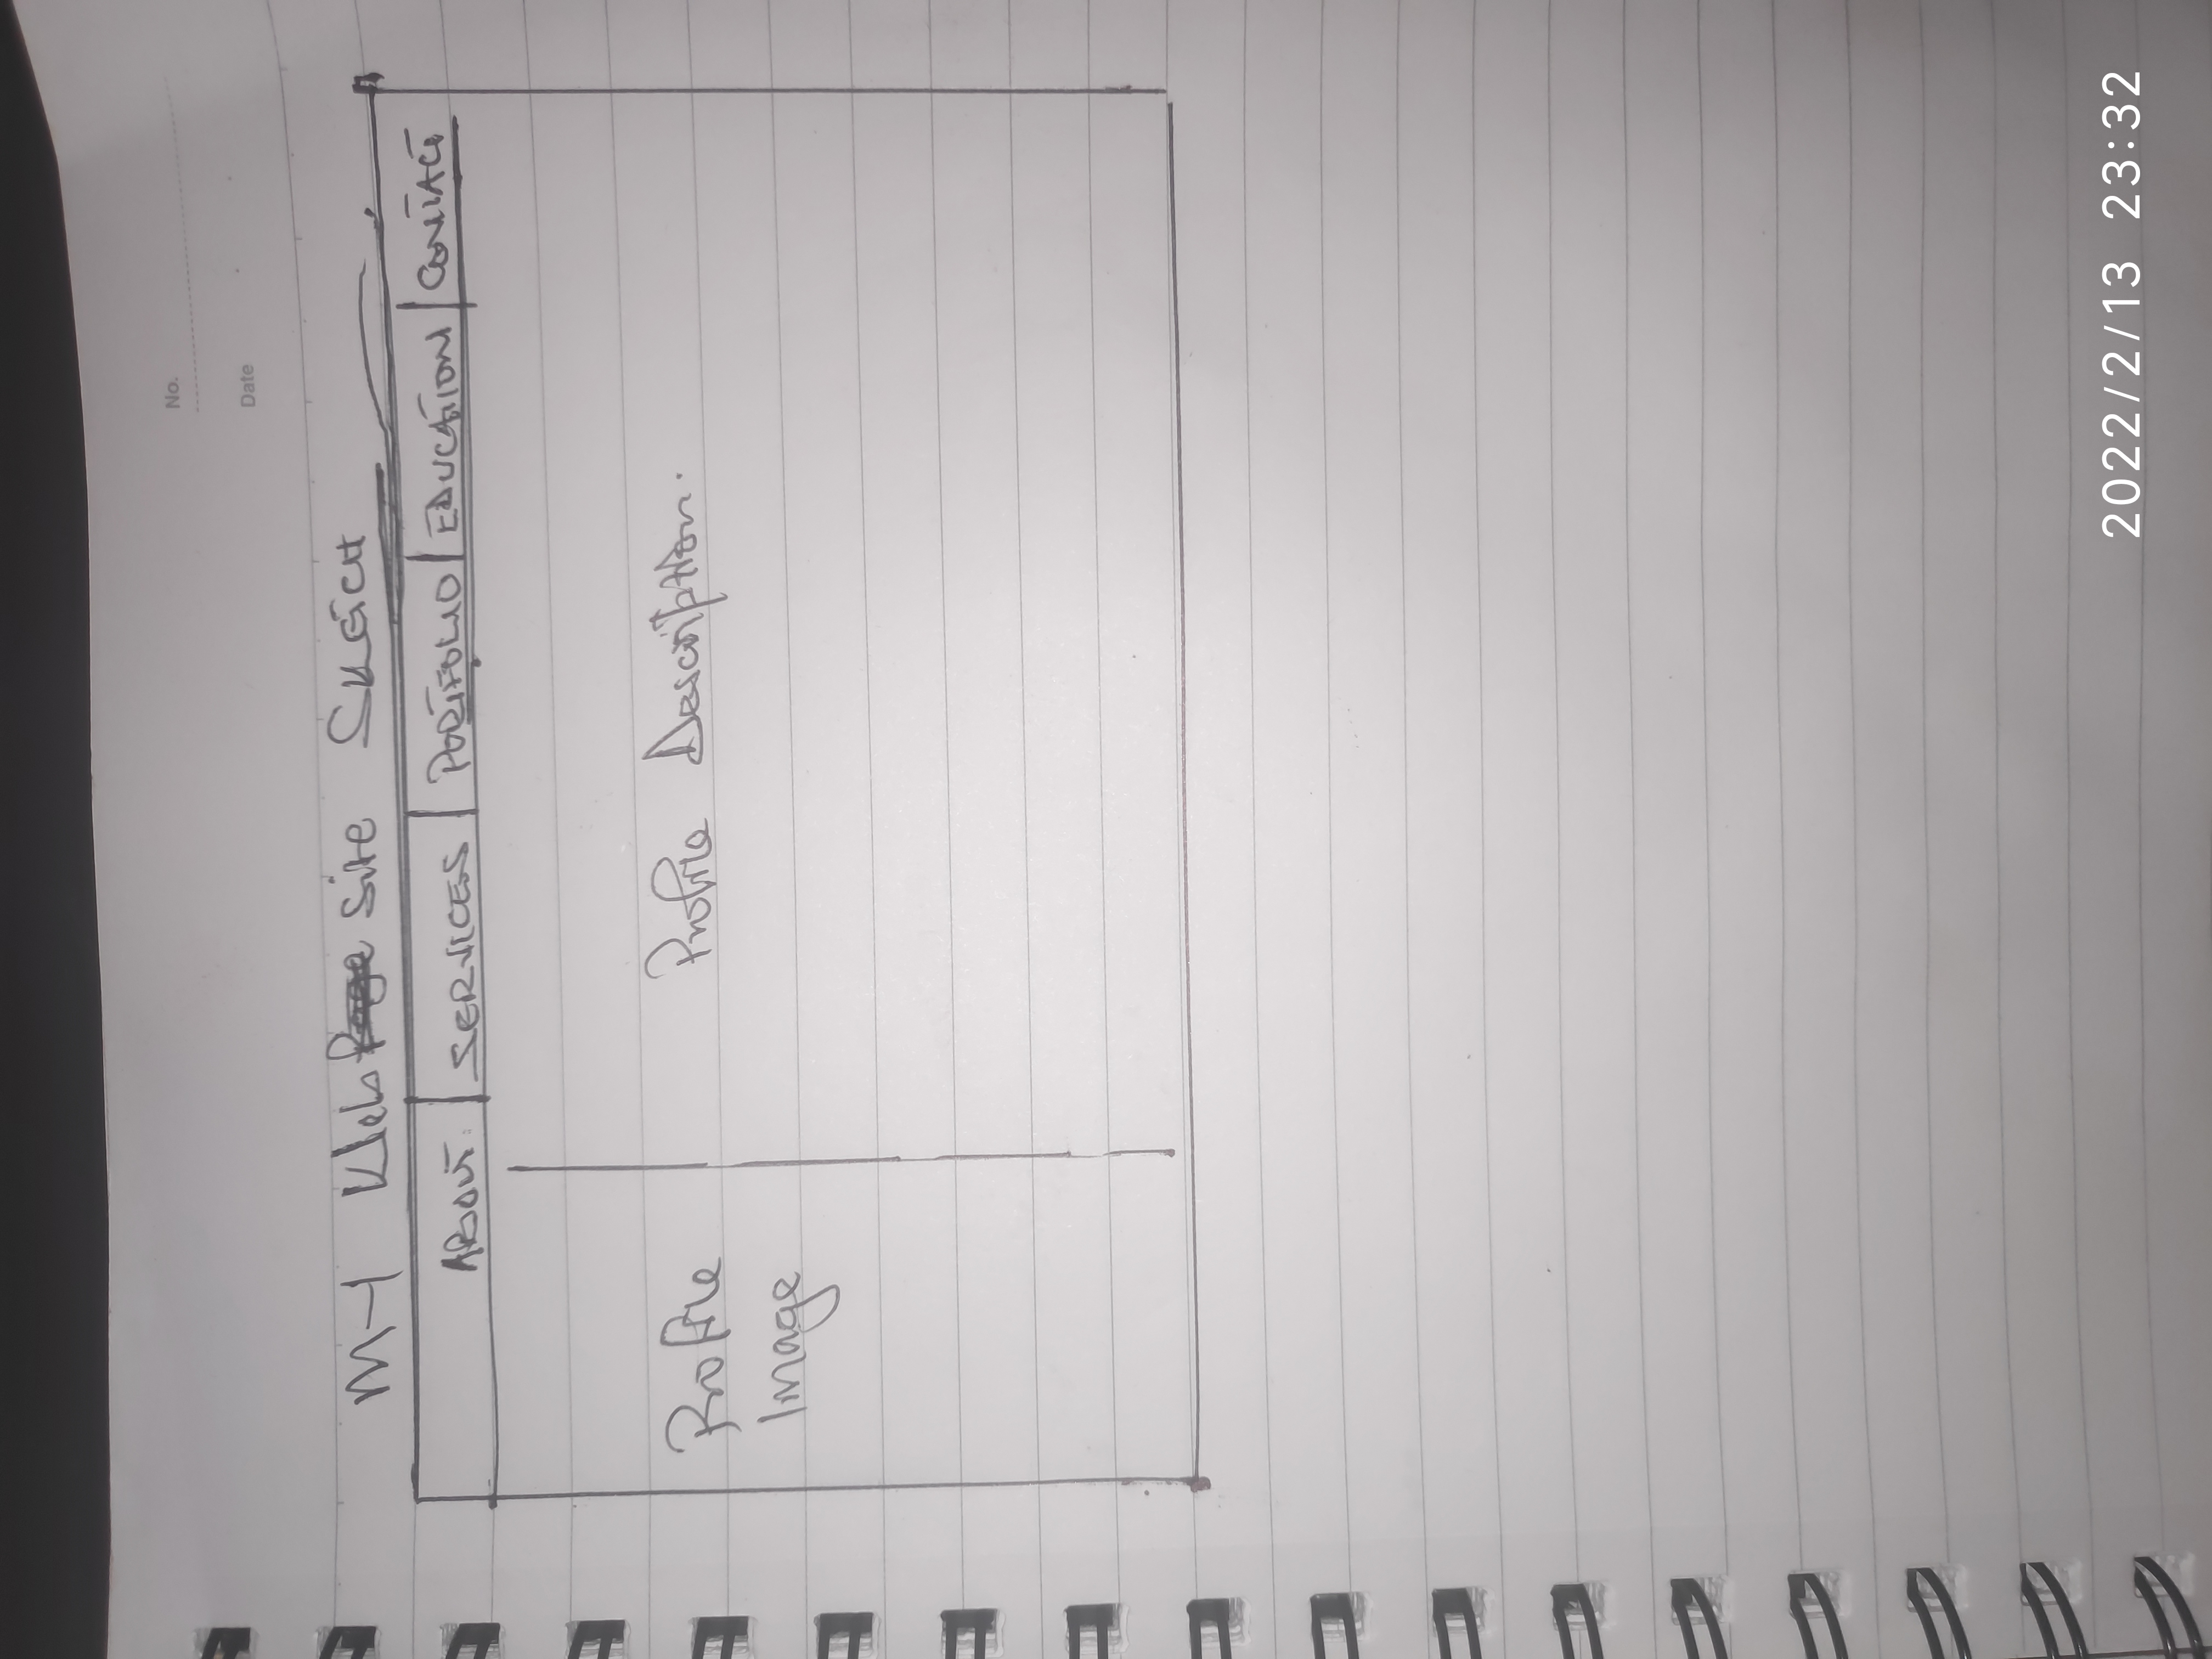 No.
Date
My Web site Sketch
ABOUT SERVICES PORTFOLIO EDUCATION CONTACT
Profile Profile Description.
Image
2022/2/13 23:32